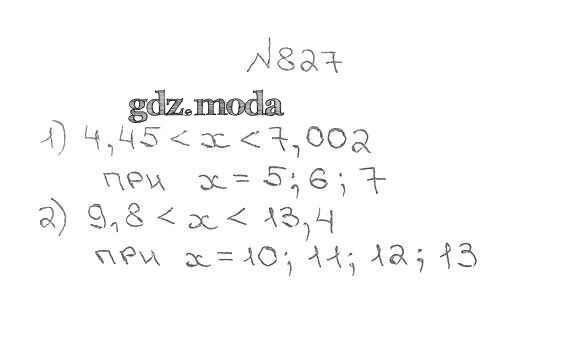 №827
gdz.moda
1) 4,45 < x < 7,002
при x = 5; 6; 7
2) 9,8 < x < 13,4
при x = 10; 11; 12; 13